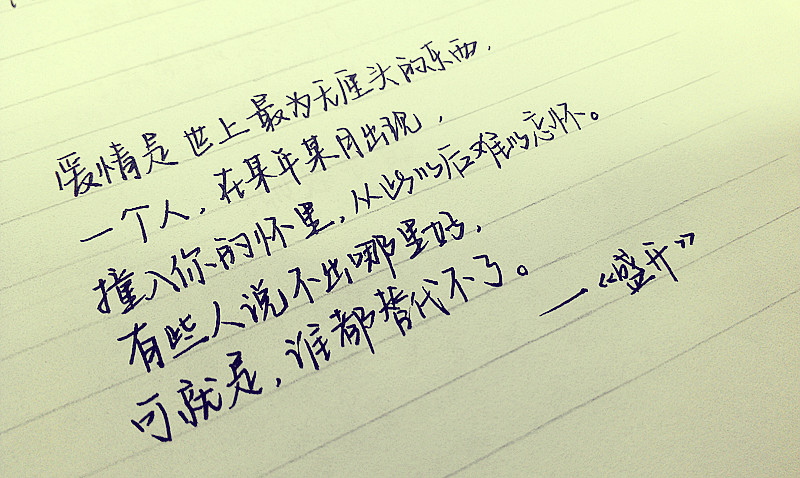 爱情是世上最为无厘头的东西，
一个人，在某年某月出现，
撞入你的怀里，从此以后难以忘怀。
有些人说不出哪里好，
可就是，谁都替代不了。
—“盛开”